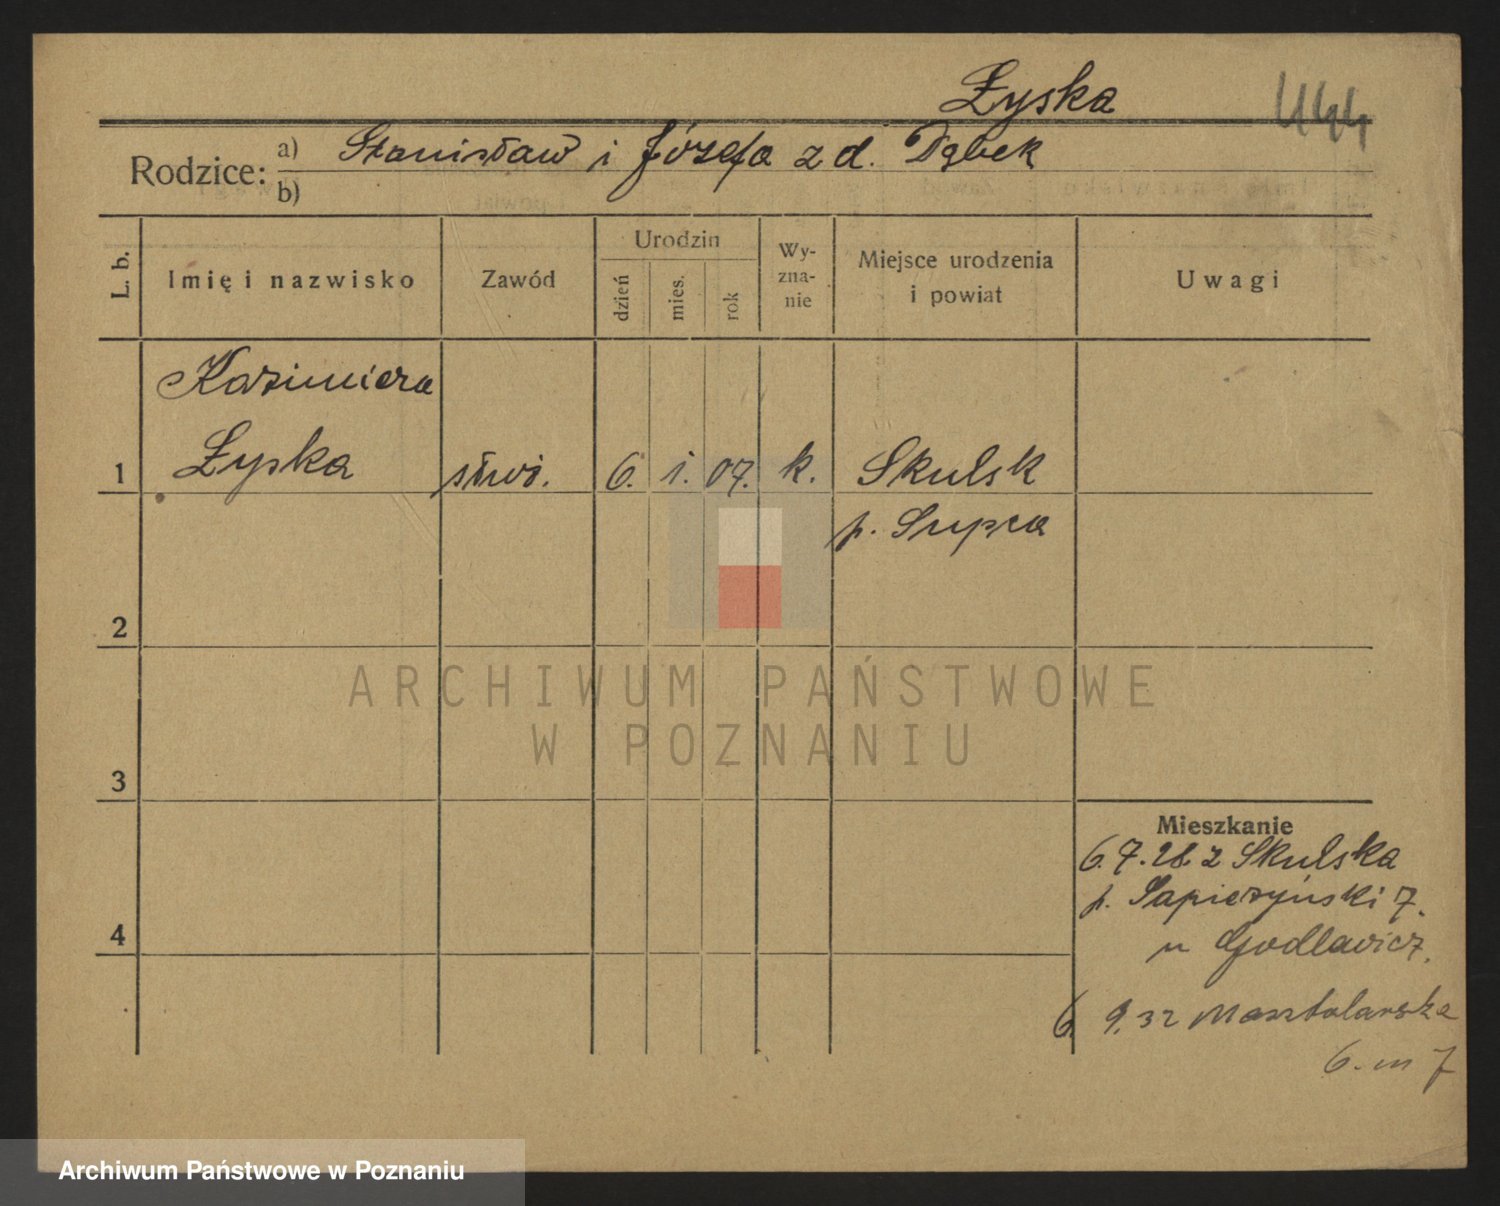 Łyska
Rodzice: a) Stanisław i Józefa z d. Dąbek
b)
L. b.
Imię i nazwisko
Zawód
Urodzin
dzień
mies.
rok
Wy-
zna-
nie
Miejsce urodzenia
i powiat
Uwagi
Kazimiera
1 Łyska służ. 6. 1. 07. k. Skulsk
p. Słupca
2
3
4
Mieszkanie
6. 7. 28. z Skulska
p. Sapieżyński 7.
u Godlewicz.
6. 9. 32 Masztalarska
6. m 7
ARCHIWUM PAŃSTWOWE
W POZNANIU
Archiwum Państwowe w Poznaniu